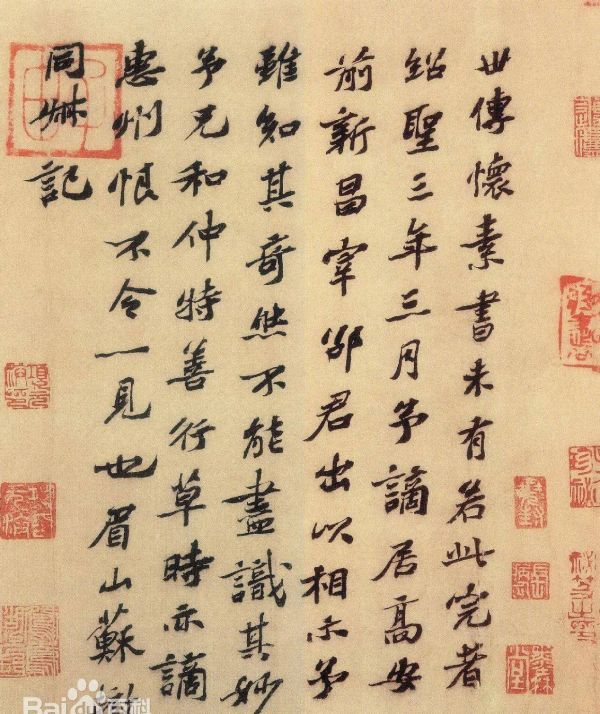 世傳懷素書未有若此完者
紹聖三年三月予謫居高安
前新昌宰邵君出以相示予
雖知其奇然不能盡識其妙
予兄和仲特善行草時亦謫
惠州恨不令一見也眉山蘇轍
同叔記
Bai百科